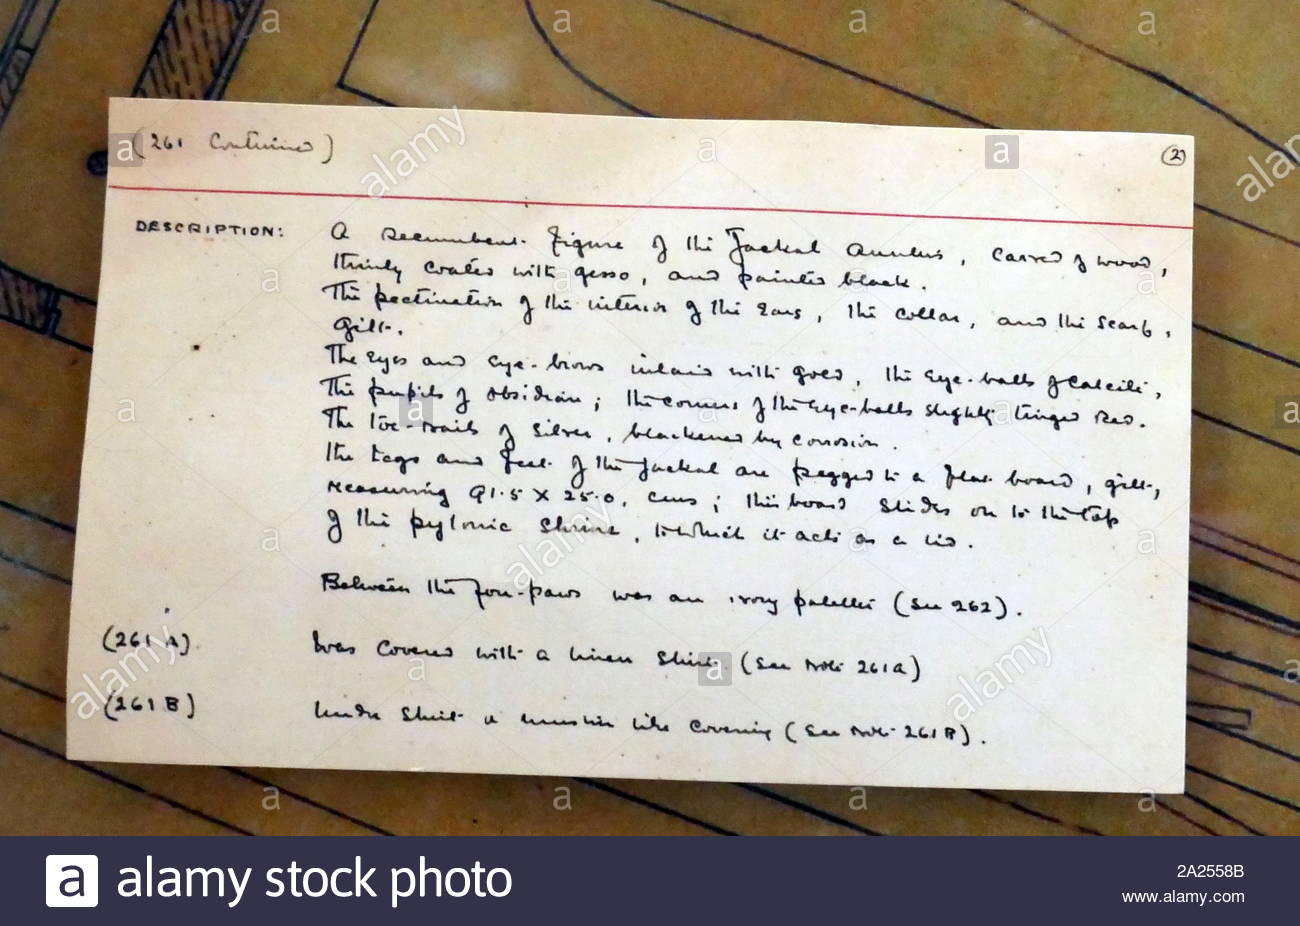 (261 Continued)
(2)
DESCRIPTION: A recumbent figure of the Jackal Anubis, carved of wood,
thinly coated with gesso, and painted black.
The pectination of the interior of the ears, the collar, and the scarf,
gilt.
The eyes and eye-brows inlaid with gold, the eye-balls of calcite,
the pupils of obsidian; the corners of the eye-balls slightly tinged red.
The toe-nails of silver, blackened by corrosion.
The legs and feet of the jackal are pegged to a flat board, gilt,
measuring 91.5 X 25.0. cms; this board slides on to the top
of the pylonic shrine, to which it acts as a lid.
Between the fore-paws was an ivory palette (See 262).
(261 A) Was covered with a linen shirt (See Note 261A)
(261 B) Under shirt a muslin like covering (See Note 261B).
alamy
alamy
alamy
alamy
alamy
alamy
alamy
alamy stock photo
2A2558B
www.alamy.com